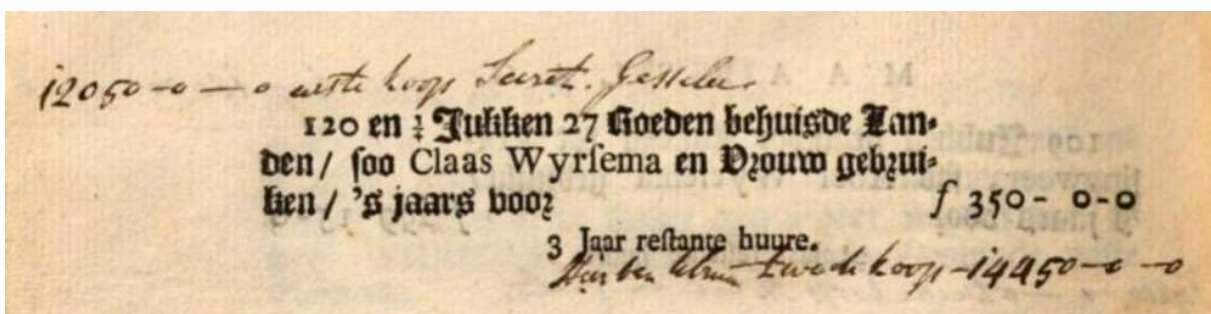 12050-0-0 eerste koop Secret. Gesseler
120 en ½ Jukken 27 Roeden behuisde Lan-
den / soo Claas Wyrsema en Vrouw gebrui-
ken / 's jaars voor f 350- 0-0
3 Jaar restante huure.
twede koop 14450-0-0